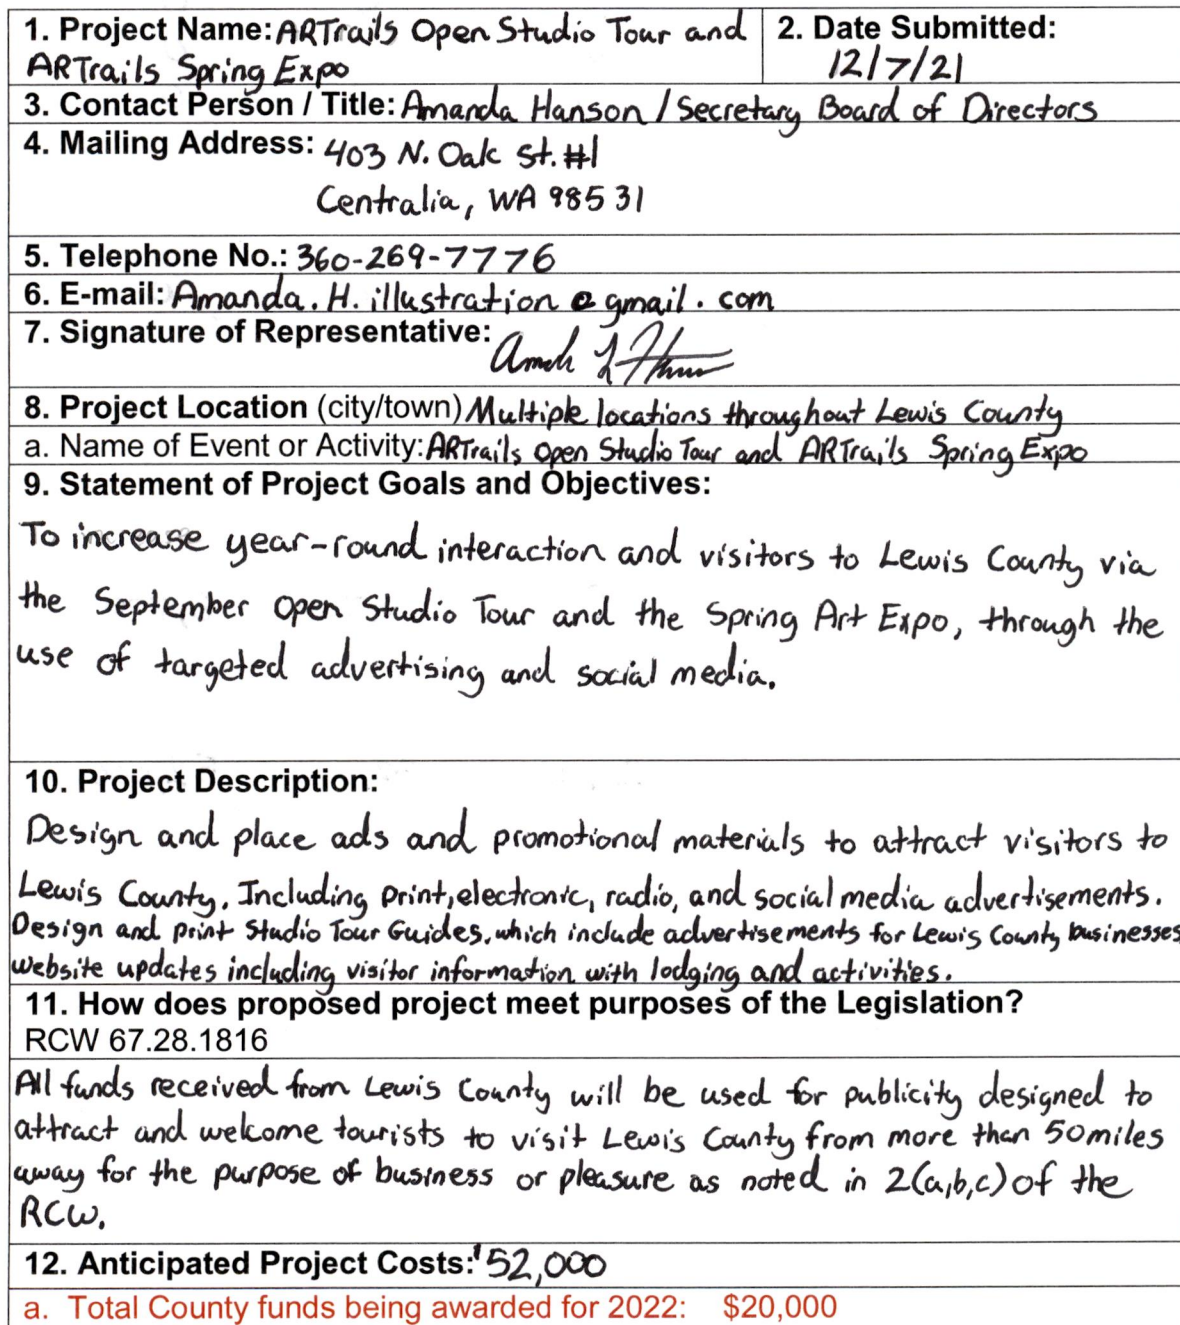 1. Project Name: ARTrails Open Studio Tour and
ARTrails Spring Expo
2. Date Submitted:
12/7/21
3. Contact Person / Title: Amanda Hanson / Secretary Board of Directors
4. Mailing Address: 403 N. Oak St. #1
Centralia, WA 98531
5. Telephone No.: 360-269-7776
6. E-mail: Amanda.H.illustration@gmail.com
7. Signature of Representative:
8. Project Location (city/town) Multiple locations throughout Lewis County
a. Name of Event or Activity: ARTrails Open Studio Tour and ARTrails Spring Expo
9. Statement of Project Goals and Objectives:
To increase year-round interaction and visitors to Lewis County via
the September Open Studio Tour and the Spring Art Expo, through the
use of targeted advertising and social media.
10. Project Description:
Design and place ads and promotional materials to attract visitors to
Lewis County. Including print, electronic, radio, and social media advertisements.
Design and print Studio Tour Guides, which include advertisements for Lewis County businesses
Website updates including visitor information with lodging and activities.
11. How does proposed project meet purposes of the Legislation?
RCW 67.28.1816
All funds received from Lewis County will be used for publicity designed to
attract and welcome tourists to visit Lewis County from more than 50 miles
away for the purpose of business or pleasure as noted in 2(a,b,c) of the
RCW.
12. Anticipated Project Costs: $52,000
a. Total County funds being awarded for 2022: $20,000